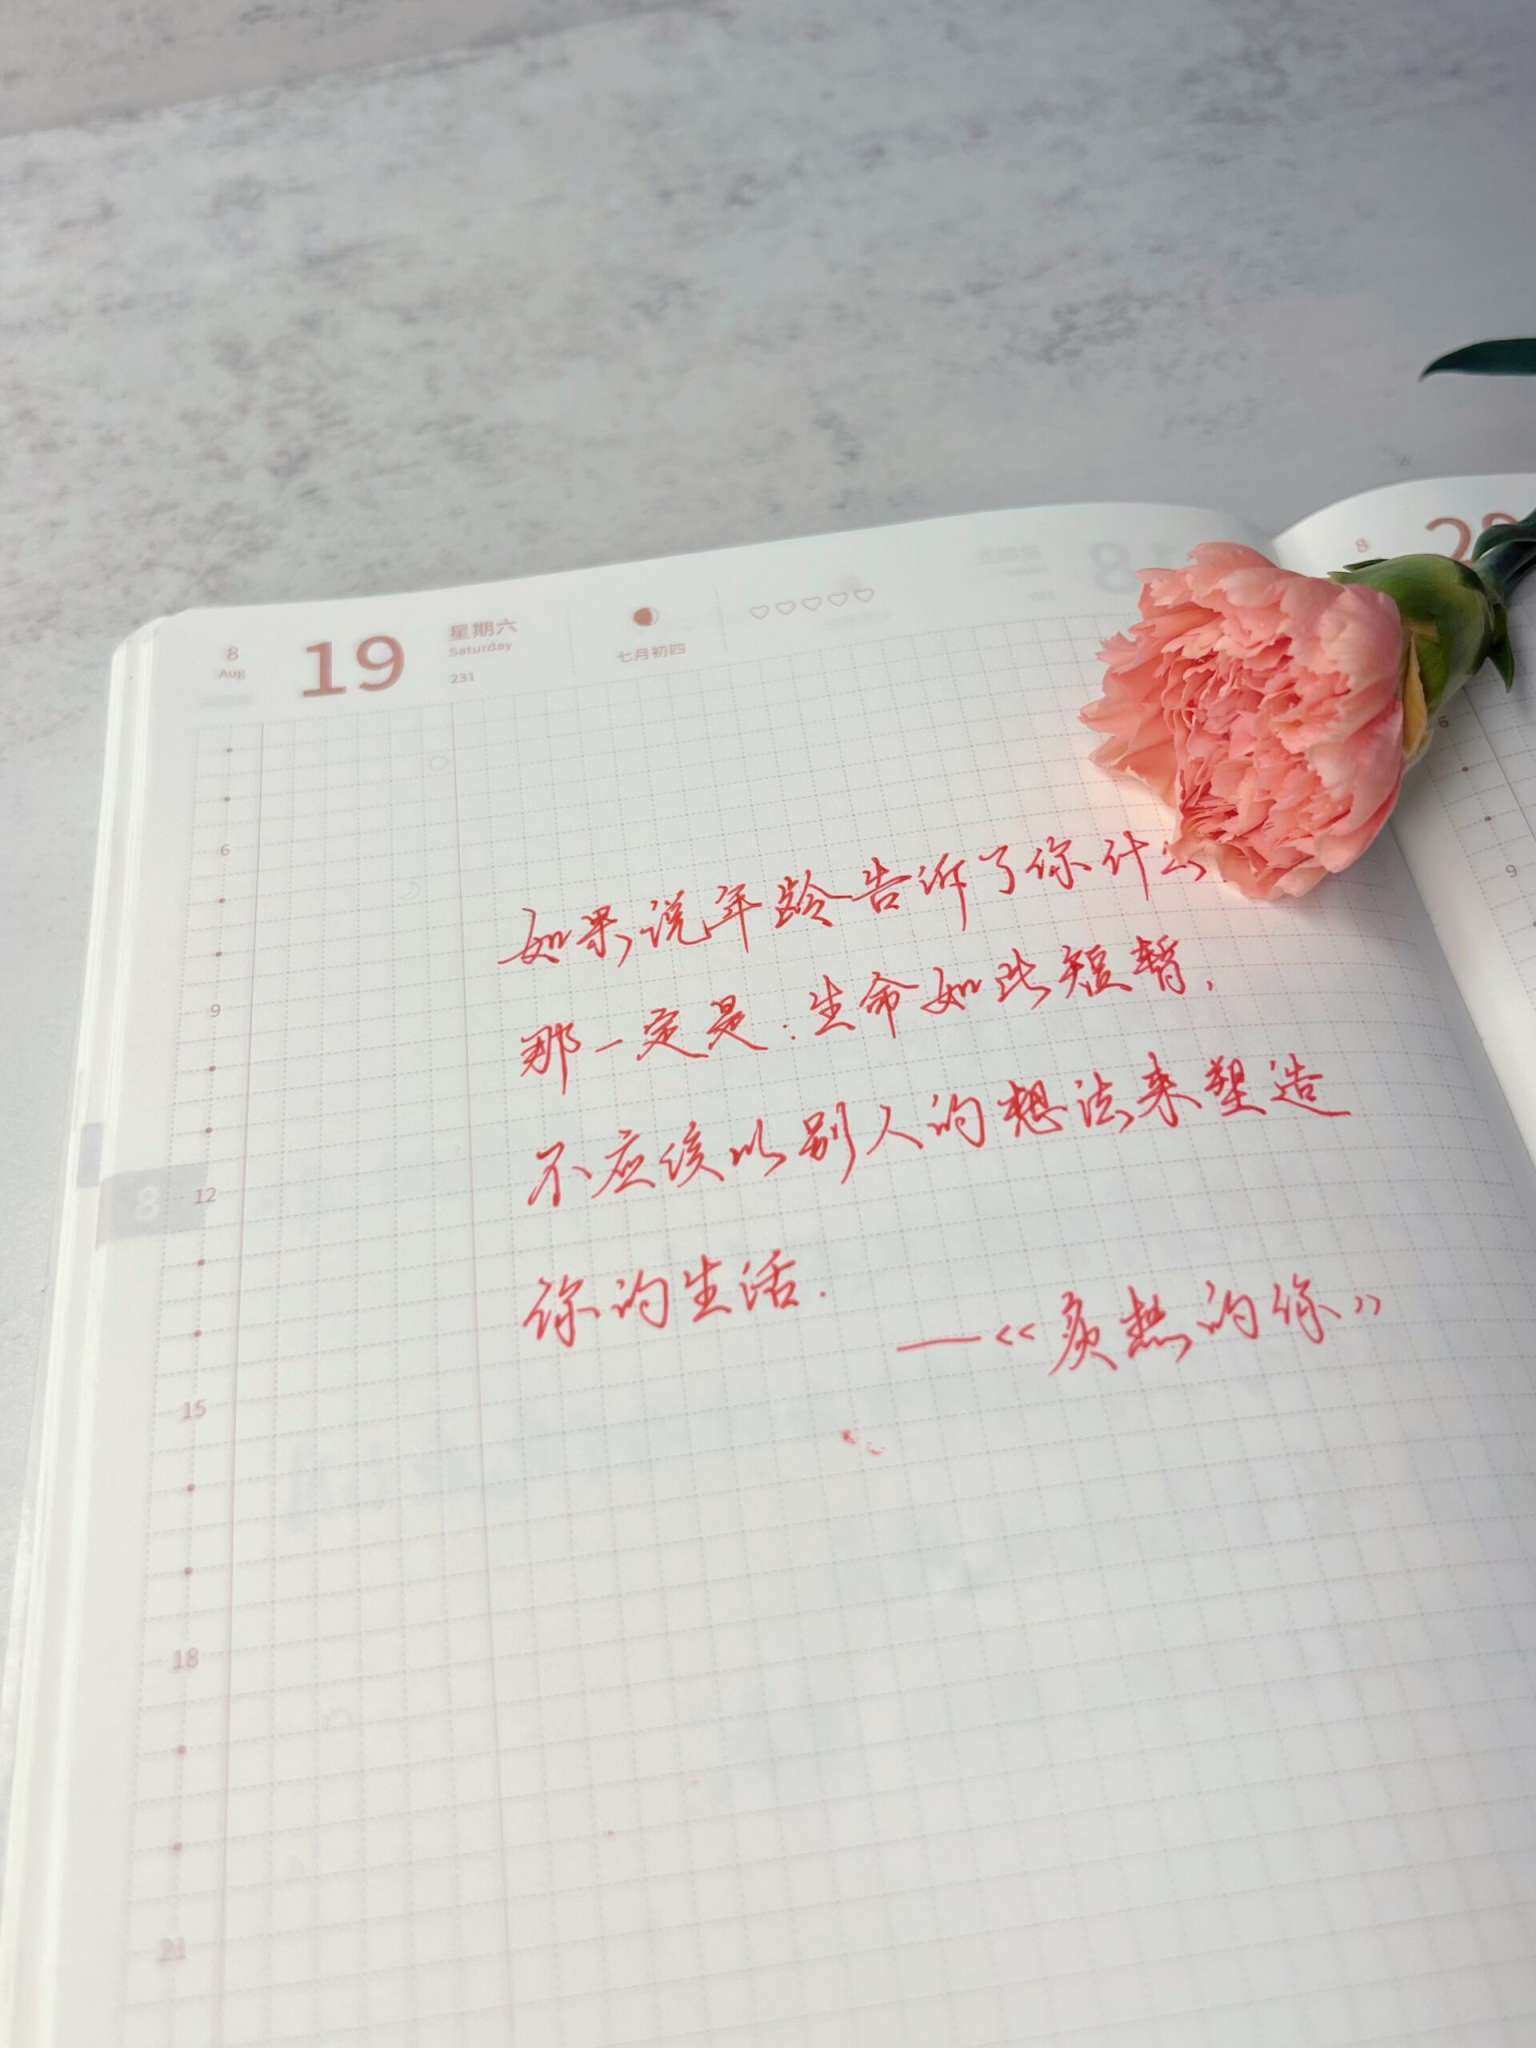 8
Aug
19
星期六
Saturday
231
七月初四
8
6
9
12
15
18
21
8
6
9
如果说年龄告诉了你什么
那一定是:生命如此短暂,
不应该以别人的想法来塑造
你的生活.
—《炙热的你》